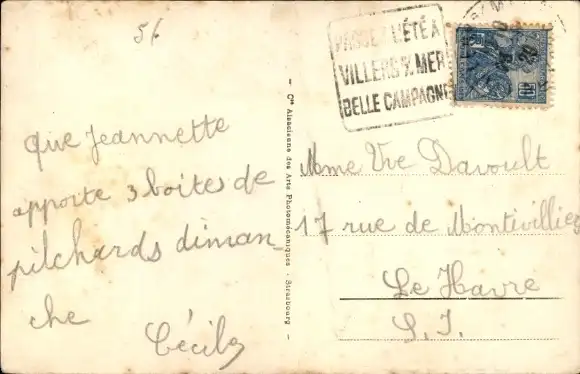 51
PASSEZ L'ÉTÉ À
VILLERS S/MER
BELLE CAMPAGNE
Que Jeannette
apporte 3 boites de
pilchards diman_
che
Cécile
- Cie Alsacienne des Arts Photomécaniques - Strasbourg -
Mme Vve Davoult
17 rue de Montivilliez
Le Havre
S. I.